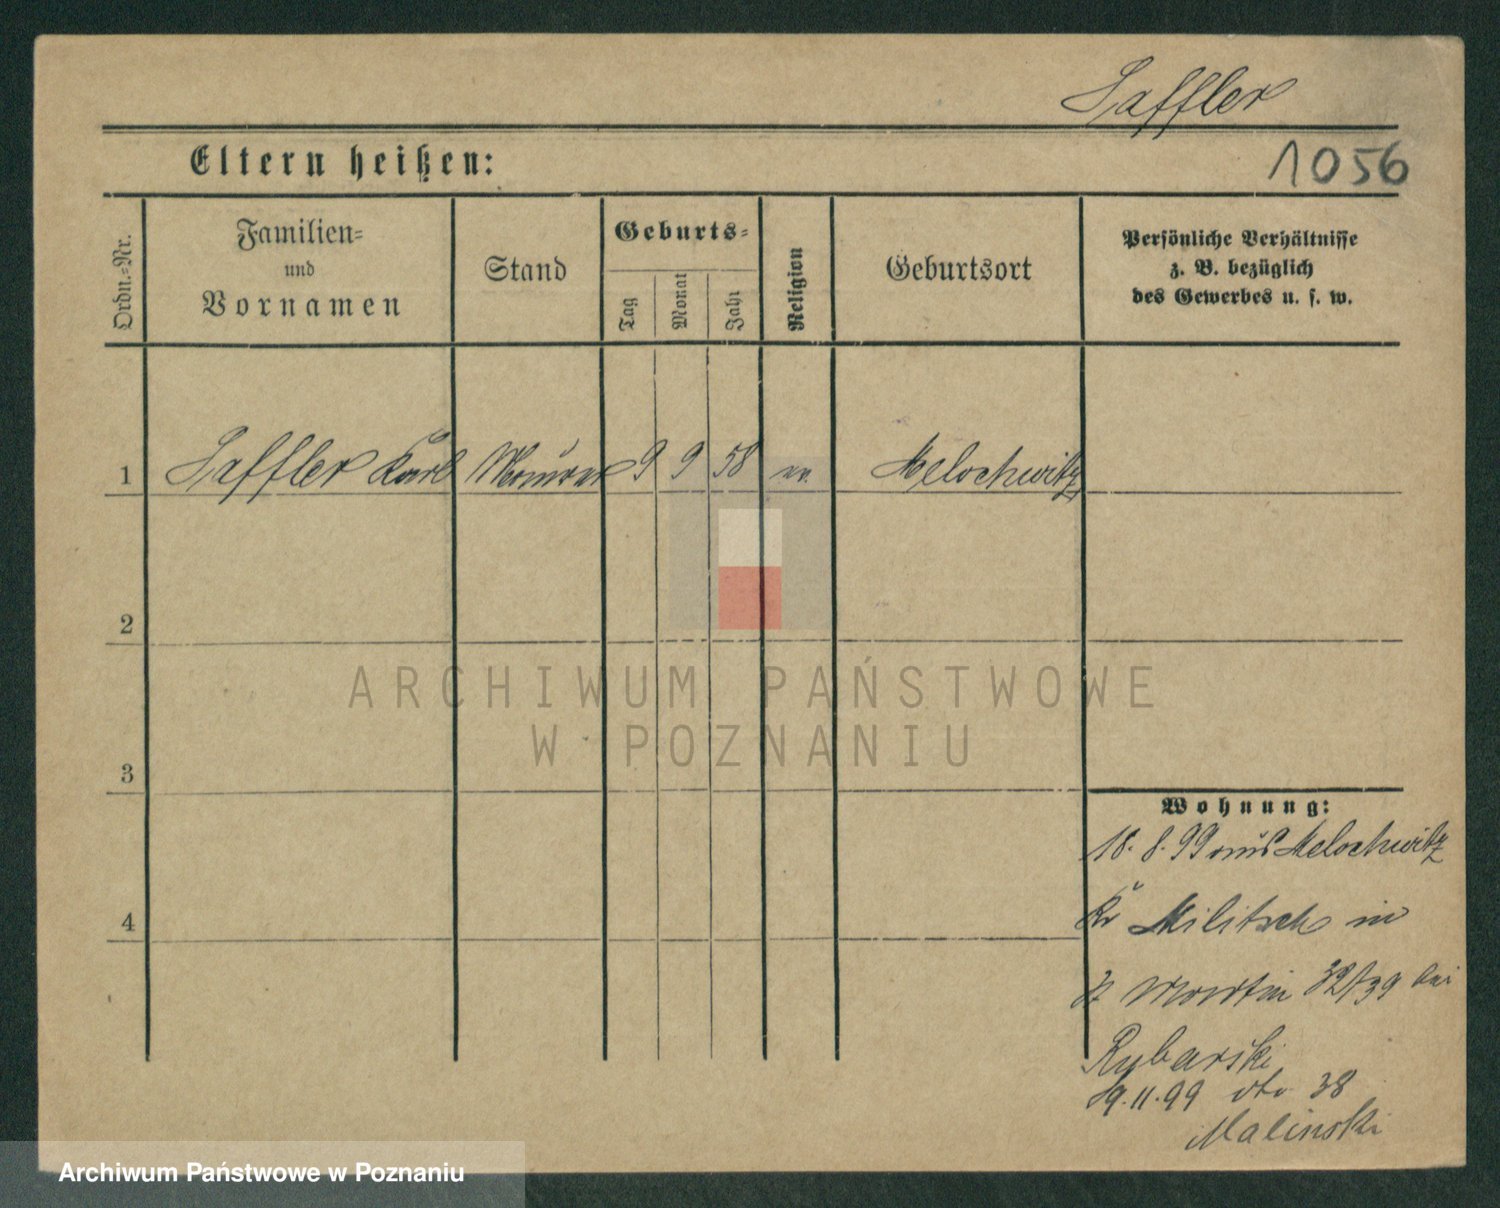 Saffler
Eltern heißen:
1056
Ordn.-Nr.
Familien-
und
Vornamen
Stand
Geburts-
Tag
Monat
Jahr
Religion
Geburtsort
Persönliche Verhältnisse
z. B. bezüglich
des Gewerbes u. s. w.
1 Saffler Karl Maurer 9 9 58 ev. Melochwitz
2
3
4
Wohnung:
18. 8. 99 aus Melochwitz
Kr Militsch in
St Martin 32/39 bei
Rubarski
19.11.99 dto 38
Malinski
ARCHIWUM PAŃSTWOWE
W POZNANIU
Archiwum Państwowe w Poznaniu